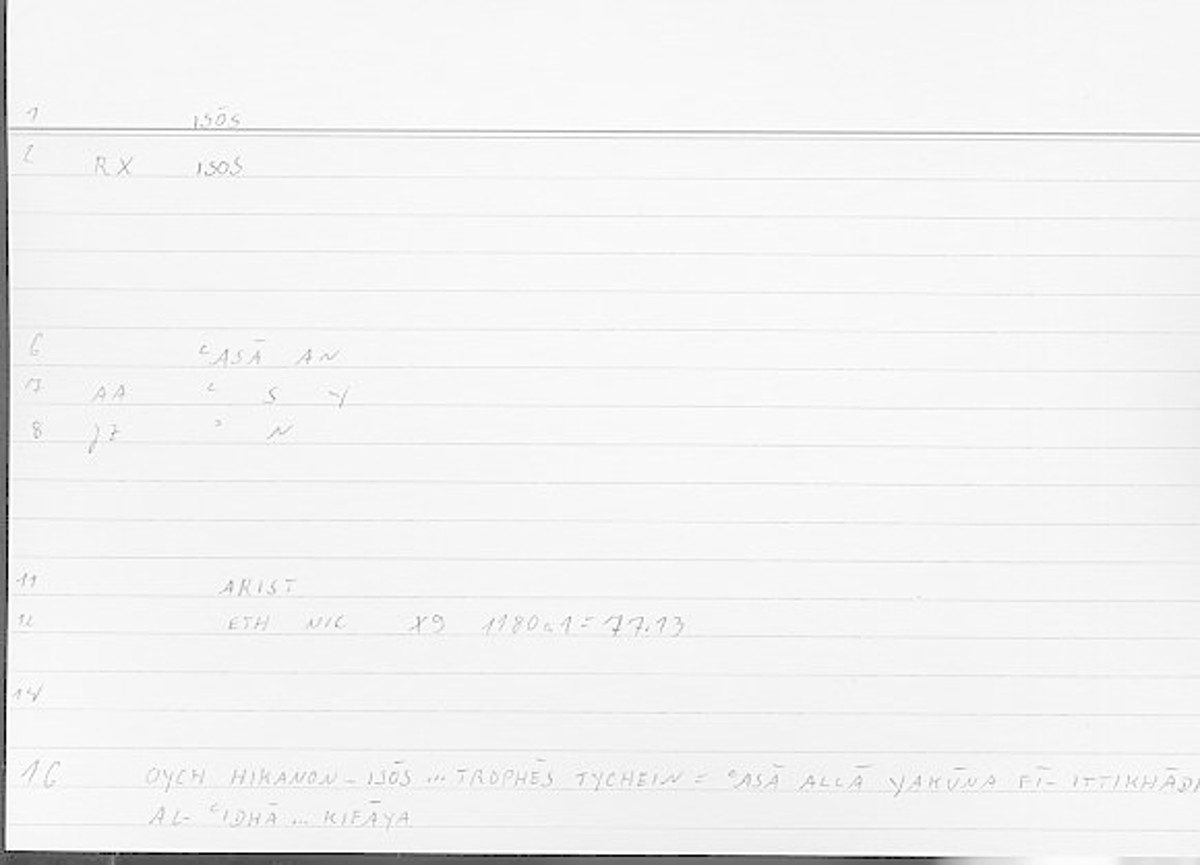 1 ISŌS
2 RX ISOS
6 ʿASĀ AN
7 AA ʿ S Y
8 jz ʾ N
11 ARIST
12 ETH NIC X9 1180a1 = 77.13
14
16 OYCH HIKANON - ISŌS ... TROPHĒS TYCHEIN = ʿASĀ ALLĀ YAKŪNA FĪ- ITTIKHĀDI
AL- ʿIDHĀ ... KIFĀYA